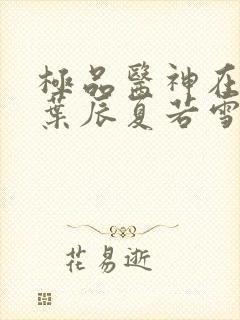 極品醫神在
葉辰夏若雪
花易逝